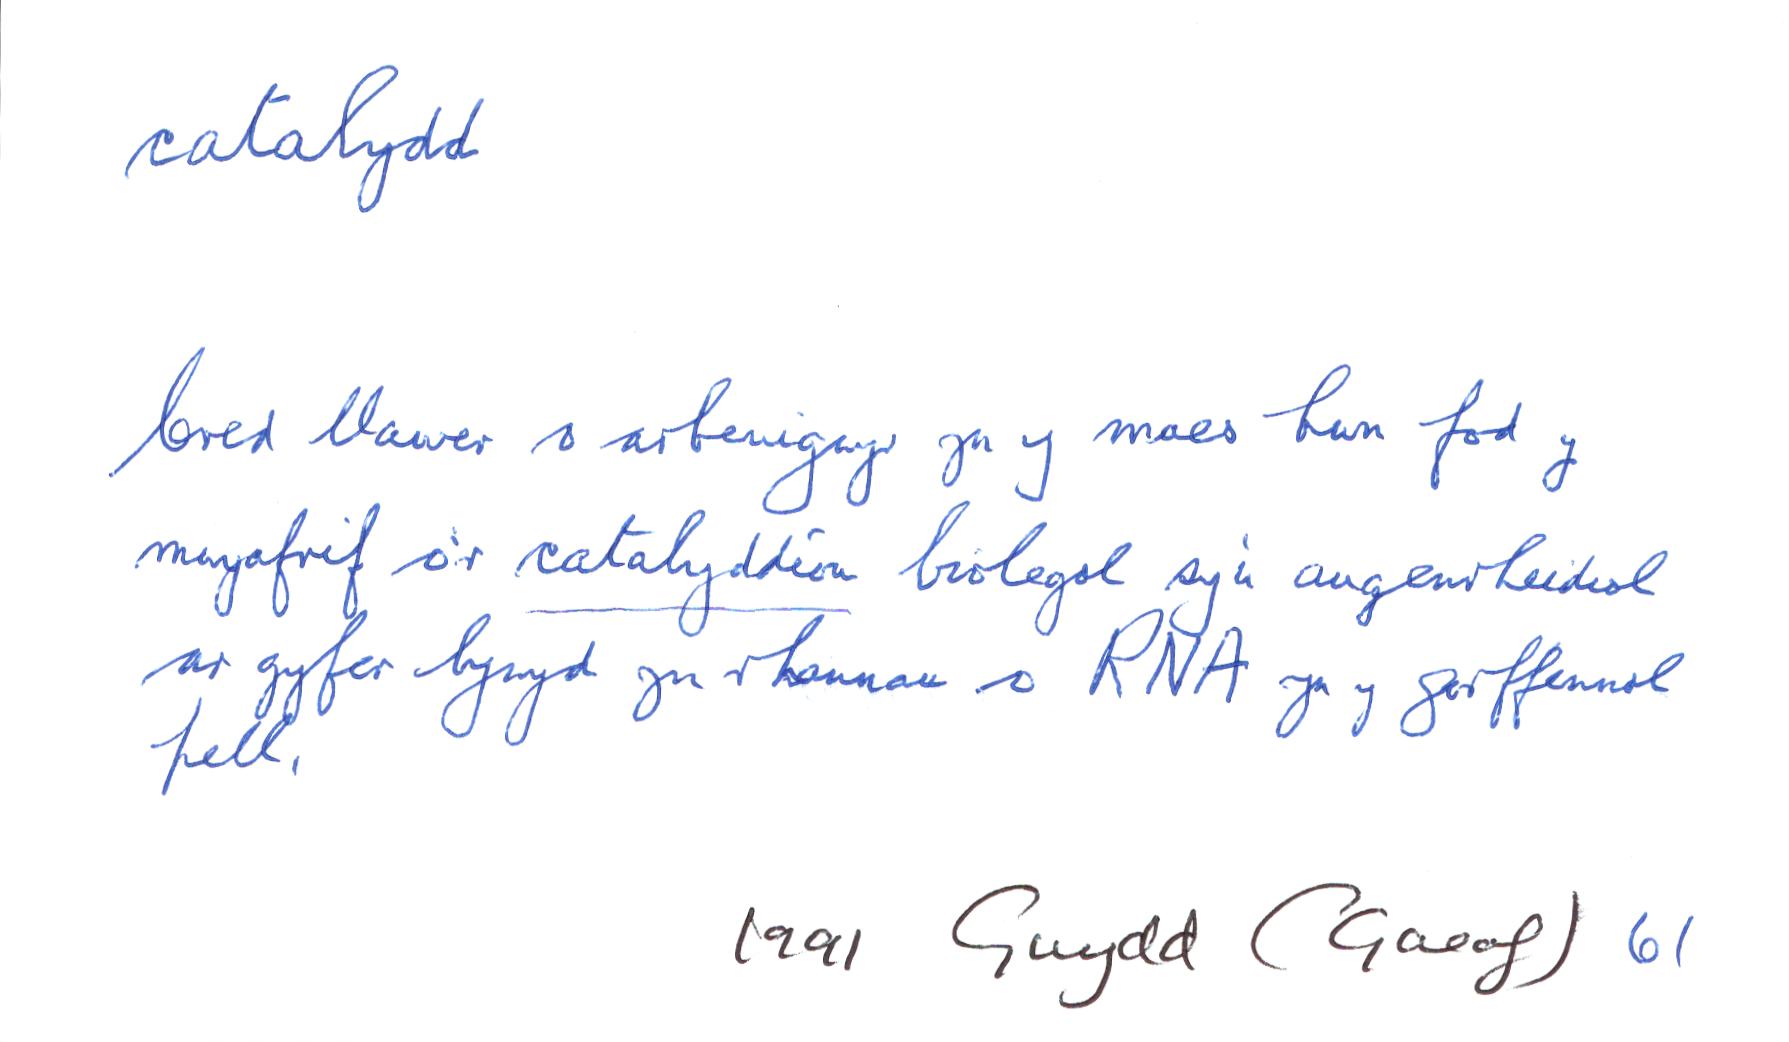 catalydd
Cred llawer o arbenigwyr yn y maes hwn fod y
mwyafrif o'r catalyddion biolegol sy'n angenrheidiol
ar gyfer bywyd yn rhannau o RNA yn y gorffennol
pell.
1991 Gwydd (Gaeaf) 61